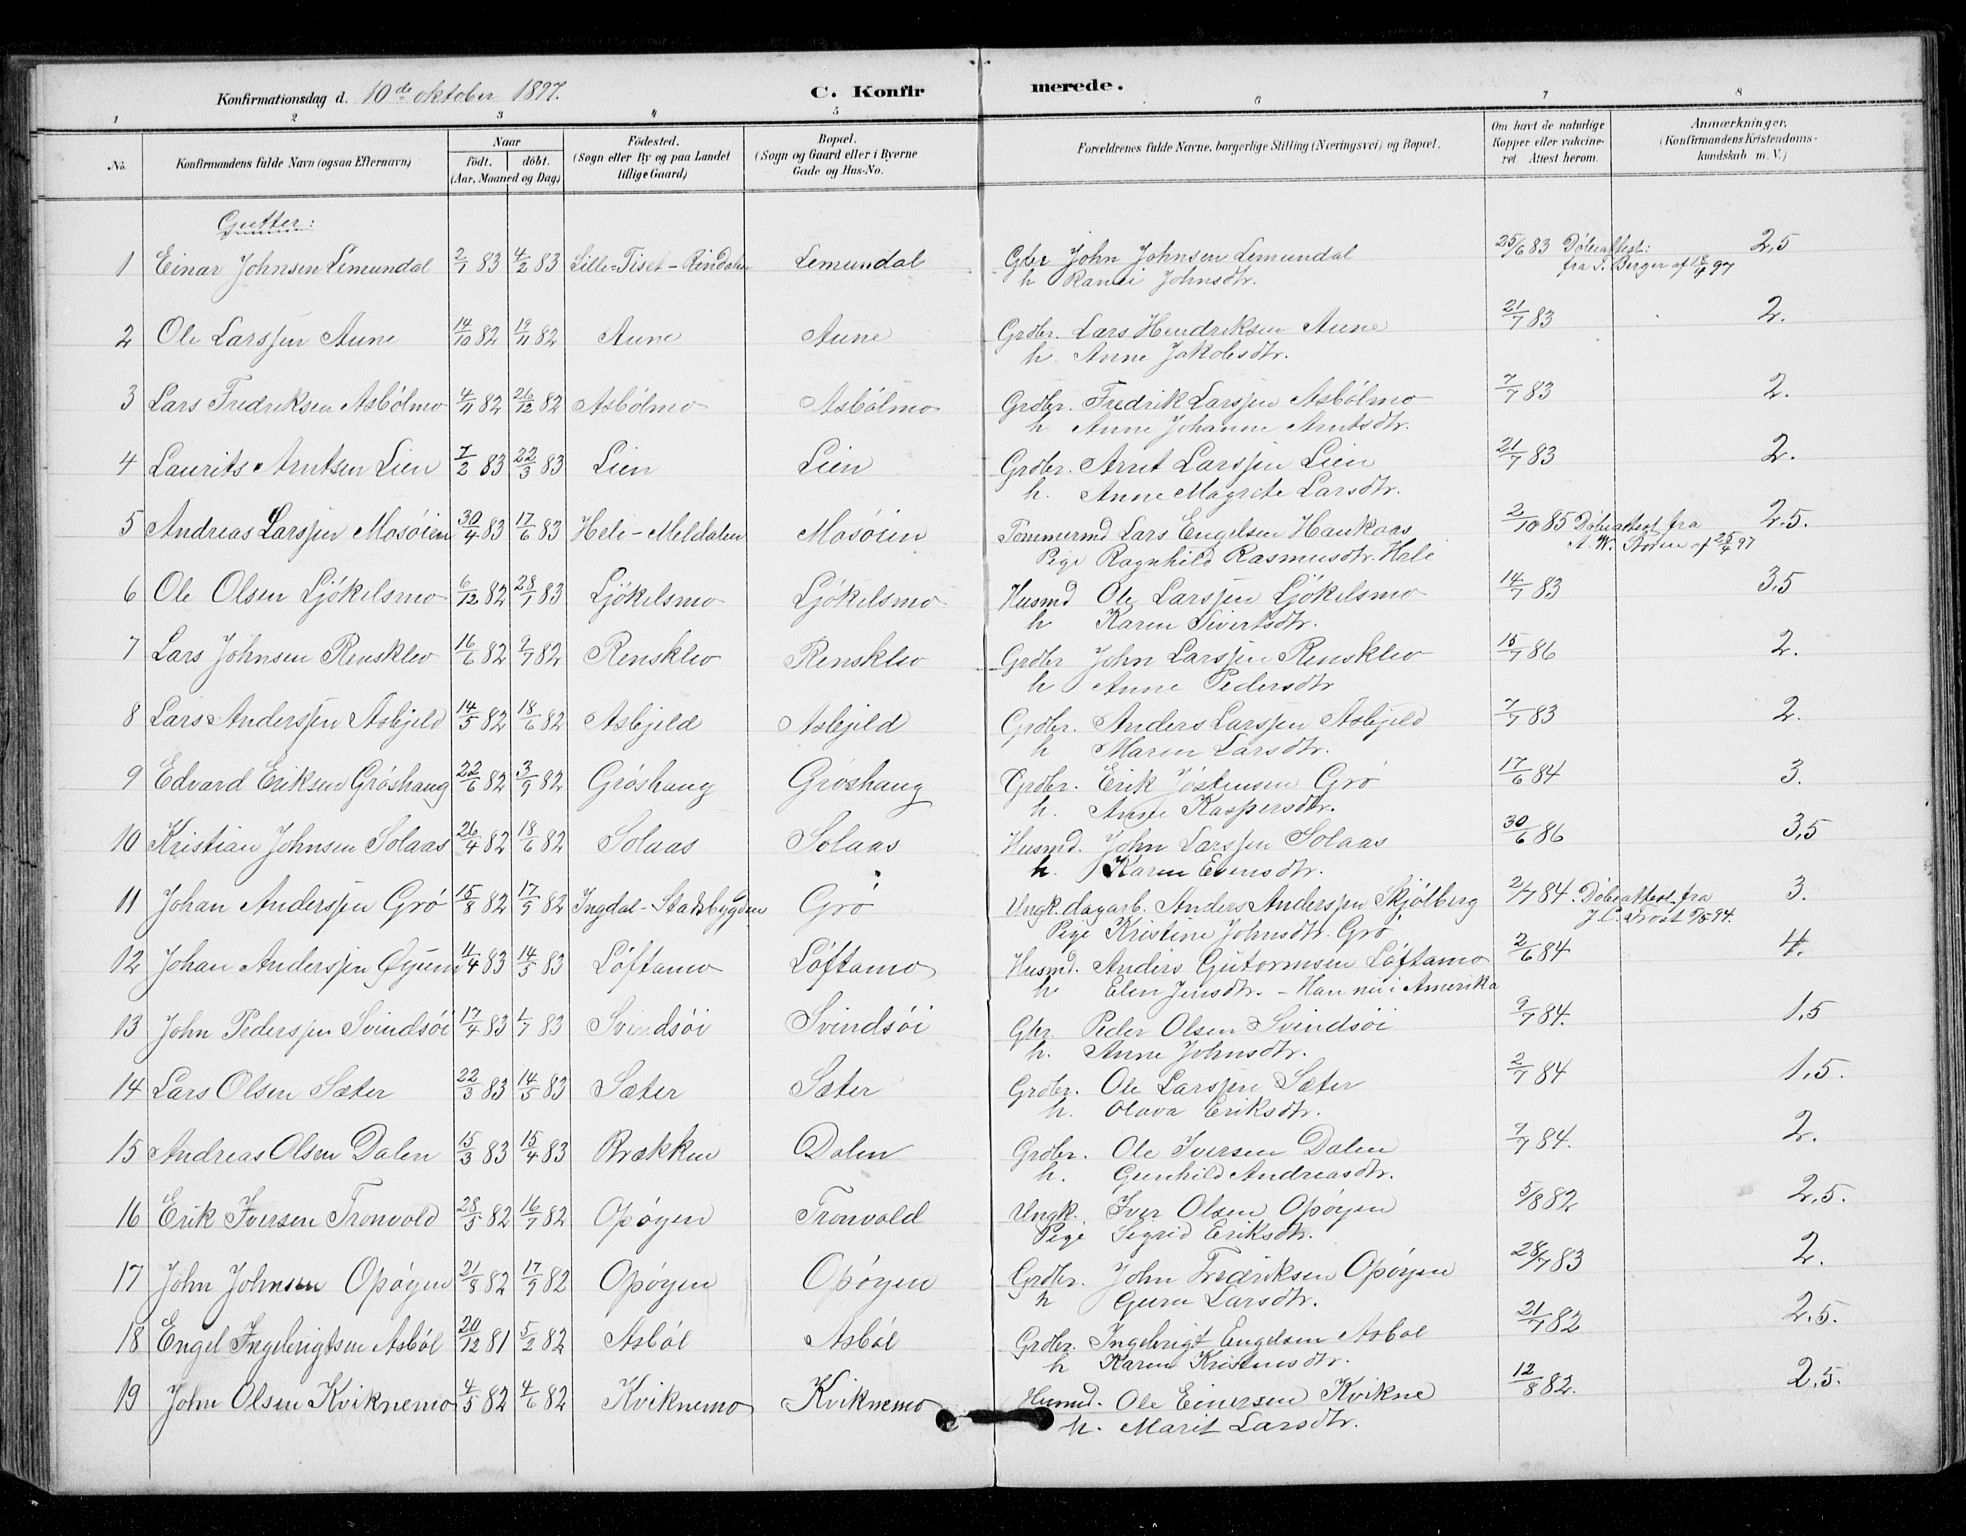 Konfirmationsdag d. 10de oktober 1897.
C. Konfirmerede.
1 2 3 4 5 6 7 8
No. Konfirmandens fulde Navn (ogsaa Efternavn) Naar Födt. döbt. (Aar, Maaned og Dag) Födested. (Sogn eller By og paa Landet tillige Gaard) Bopæl. (Sogn og Gaard eller i Byerne Gade og Hus-No. Forældrenes fulde Navne, borgerlige Stilling (Næringsvei) og Bopæl. Om havt de naturlige Kopper eller vakcineret Attest herom. Anmærkninger. (Konfirmandens Kristendomskundskab m. V.)
Gutter:
1 Einar Johnsen Lemundal 2/1 83 4/2 83 Lille-Tiset-Rindalen Lemundal Gbr John Johnsen Lemundal 25/6 83 Döbeattest: 2,5
h Randi Johnsdtr. fra S. Berger af 18/4 97
2 Ole Larssen Aune 14/10 82 19/11 82 Aune Aune Grdbr. Lars Hendriksen Aune 21/7 83 2.
h. Anne Jakobsdtr.
3 Lars Fredriksen Asbölmo 4/11 82 26/12 82 Asbölmo Asbölmo Grdbr. Fredrik Larssen Asbölmo 7/7 83 2.
h Anne Johanne Arntsdtr.
4 Laurits Arntsen Lien 7/2 83 22/3 83 Lien Lien Grdbr. Arnt Larssen Lien 21/7 83 2.
h. Anne Magrete Larsdtr.
5 Andreas Larssen Mosöien 30/4 83 17/6 83 Heli-Meldalen Mosöien Tømmermd Lars Engelsen Haukaas 2/10 85 Döbeattest fra 2.5.
Pige Ragnhild Rasmusdtr. Heli A. W. Støren af 25/4 97
6 Ole Olsen Ljökelsmo 6/12 82 28/1 83 Ljökelsmo Ljökelsmo Husmd Ole Larssen Ljökelsmo 14/7 83 3.5
h Karen Sivertsdtr.
7 Lars Johnsen Rensklev 16/6 82 9/7 82 Rensklev Rensklev Grdbr John Larssen Rensklev 15/7 86 2.
h Anne Pedersdtr
8 Lars Anderssen Asbjeld 14/5 82 18/6 82 Asbjeld Asbjeld Grdbr. Anders Larssen Asbjeld 7/7 83 2.
h Maren Larsdtr.
9 Edvard Eriksen Gröshaug 22/6 82 3/9 82 Gröshaug Gröshaug Grdbr. Erik Jöstensen Grö 17/6 84 3.
h. Anne Kaspersdtr.
10 Kristian Johnsen Solaas 26/4 82 18/6 82 Solaas Solaas Husmd. John Larssen Solaas 30/6 86 3,5
h. Karen Evensdtr.
11 Johan Anderssen Grö 15/8 82 17/9 82 Ingdal-Stadsbygden Grö Ungk. dagarb. Anders Anderssen Skjölberg 2/7 84. Döbeattest fra 3.
Pige Kristine Johnsdtr. Grö
12 Johan Anderssen 11/4 83 14/5 83 Löftamo Löftamo Husmd. Anders Gutormsen Löftamo 2/6 84 4.
h Elen Jensdtr. - Han nu i Amerika
13 John Pederssen Svindsöi 17/4 83 1/7 83 Svindsöi Svindsöi Gbr. Peder Olsen Svindsöi 9/7 84. 1.5
h. Anne Johnsdtr.
14 Lars Olsen Sæter 22/3 83 14/5 83 Sæter Sæter Grdbr. Ole Larssen Sæter 2/7 84 1,5.
h. Olava Eriksdtr.
15 Andreas Olsen Dalen 15/3 83 15/4 83 Brækken Dalen Grdbr. Ole Iversen Dalen 7/7 84. 2.
h. Gunhild Andreasdtr.
16 Erik Iversen Tronvold 28/5 82 16/7 82 Opöyen Tronvold Ungk. Iver Olsen Opöyen 5/8 82 2,5.
Pige Sigrid Eriksdtr.
17 John Johnsen Opöyen 21/8 82 17/9 82 Opöyen Opöyen Grdbr. John Fredriksen Opöyen 28/7 83 2.
h Guru Larsdtr.
18 Engel Ingebrigtsen Asböl 20/12 81 5/2 82 Asböl Asböl Grdbr. Ingebrigt Engelsen Asböl 21/7 82 2.5.
h Karen Kristensdtr.
19 John Olsen Kviknemo 4/5 82 4/6 82 Kviknemo Kviknemo Husmd. Ole Einersen Kvikne 12/8 82. 2.5.
h. Marit Larsdtr.